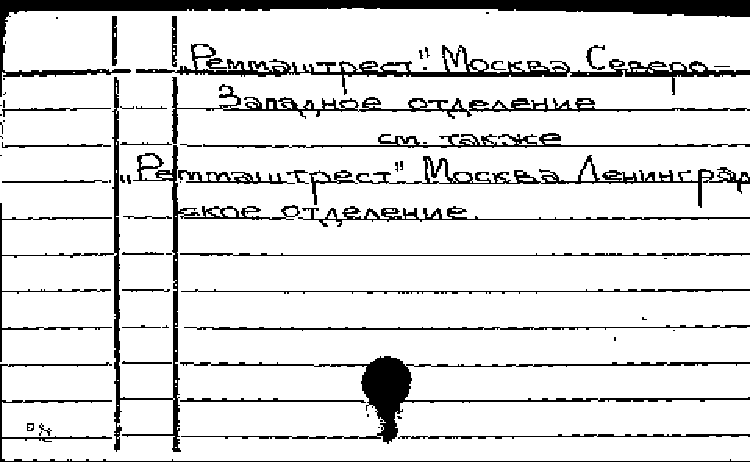 „Реммаштрест". Москва. Северо-
Западное отделение
см. также
„Реммаштрест" Москва Ленинград
ское отделение.